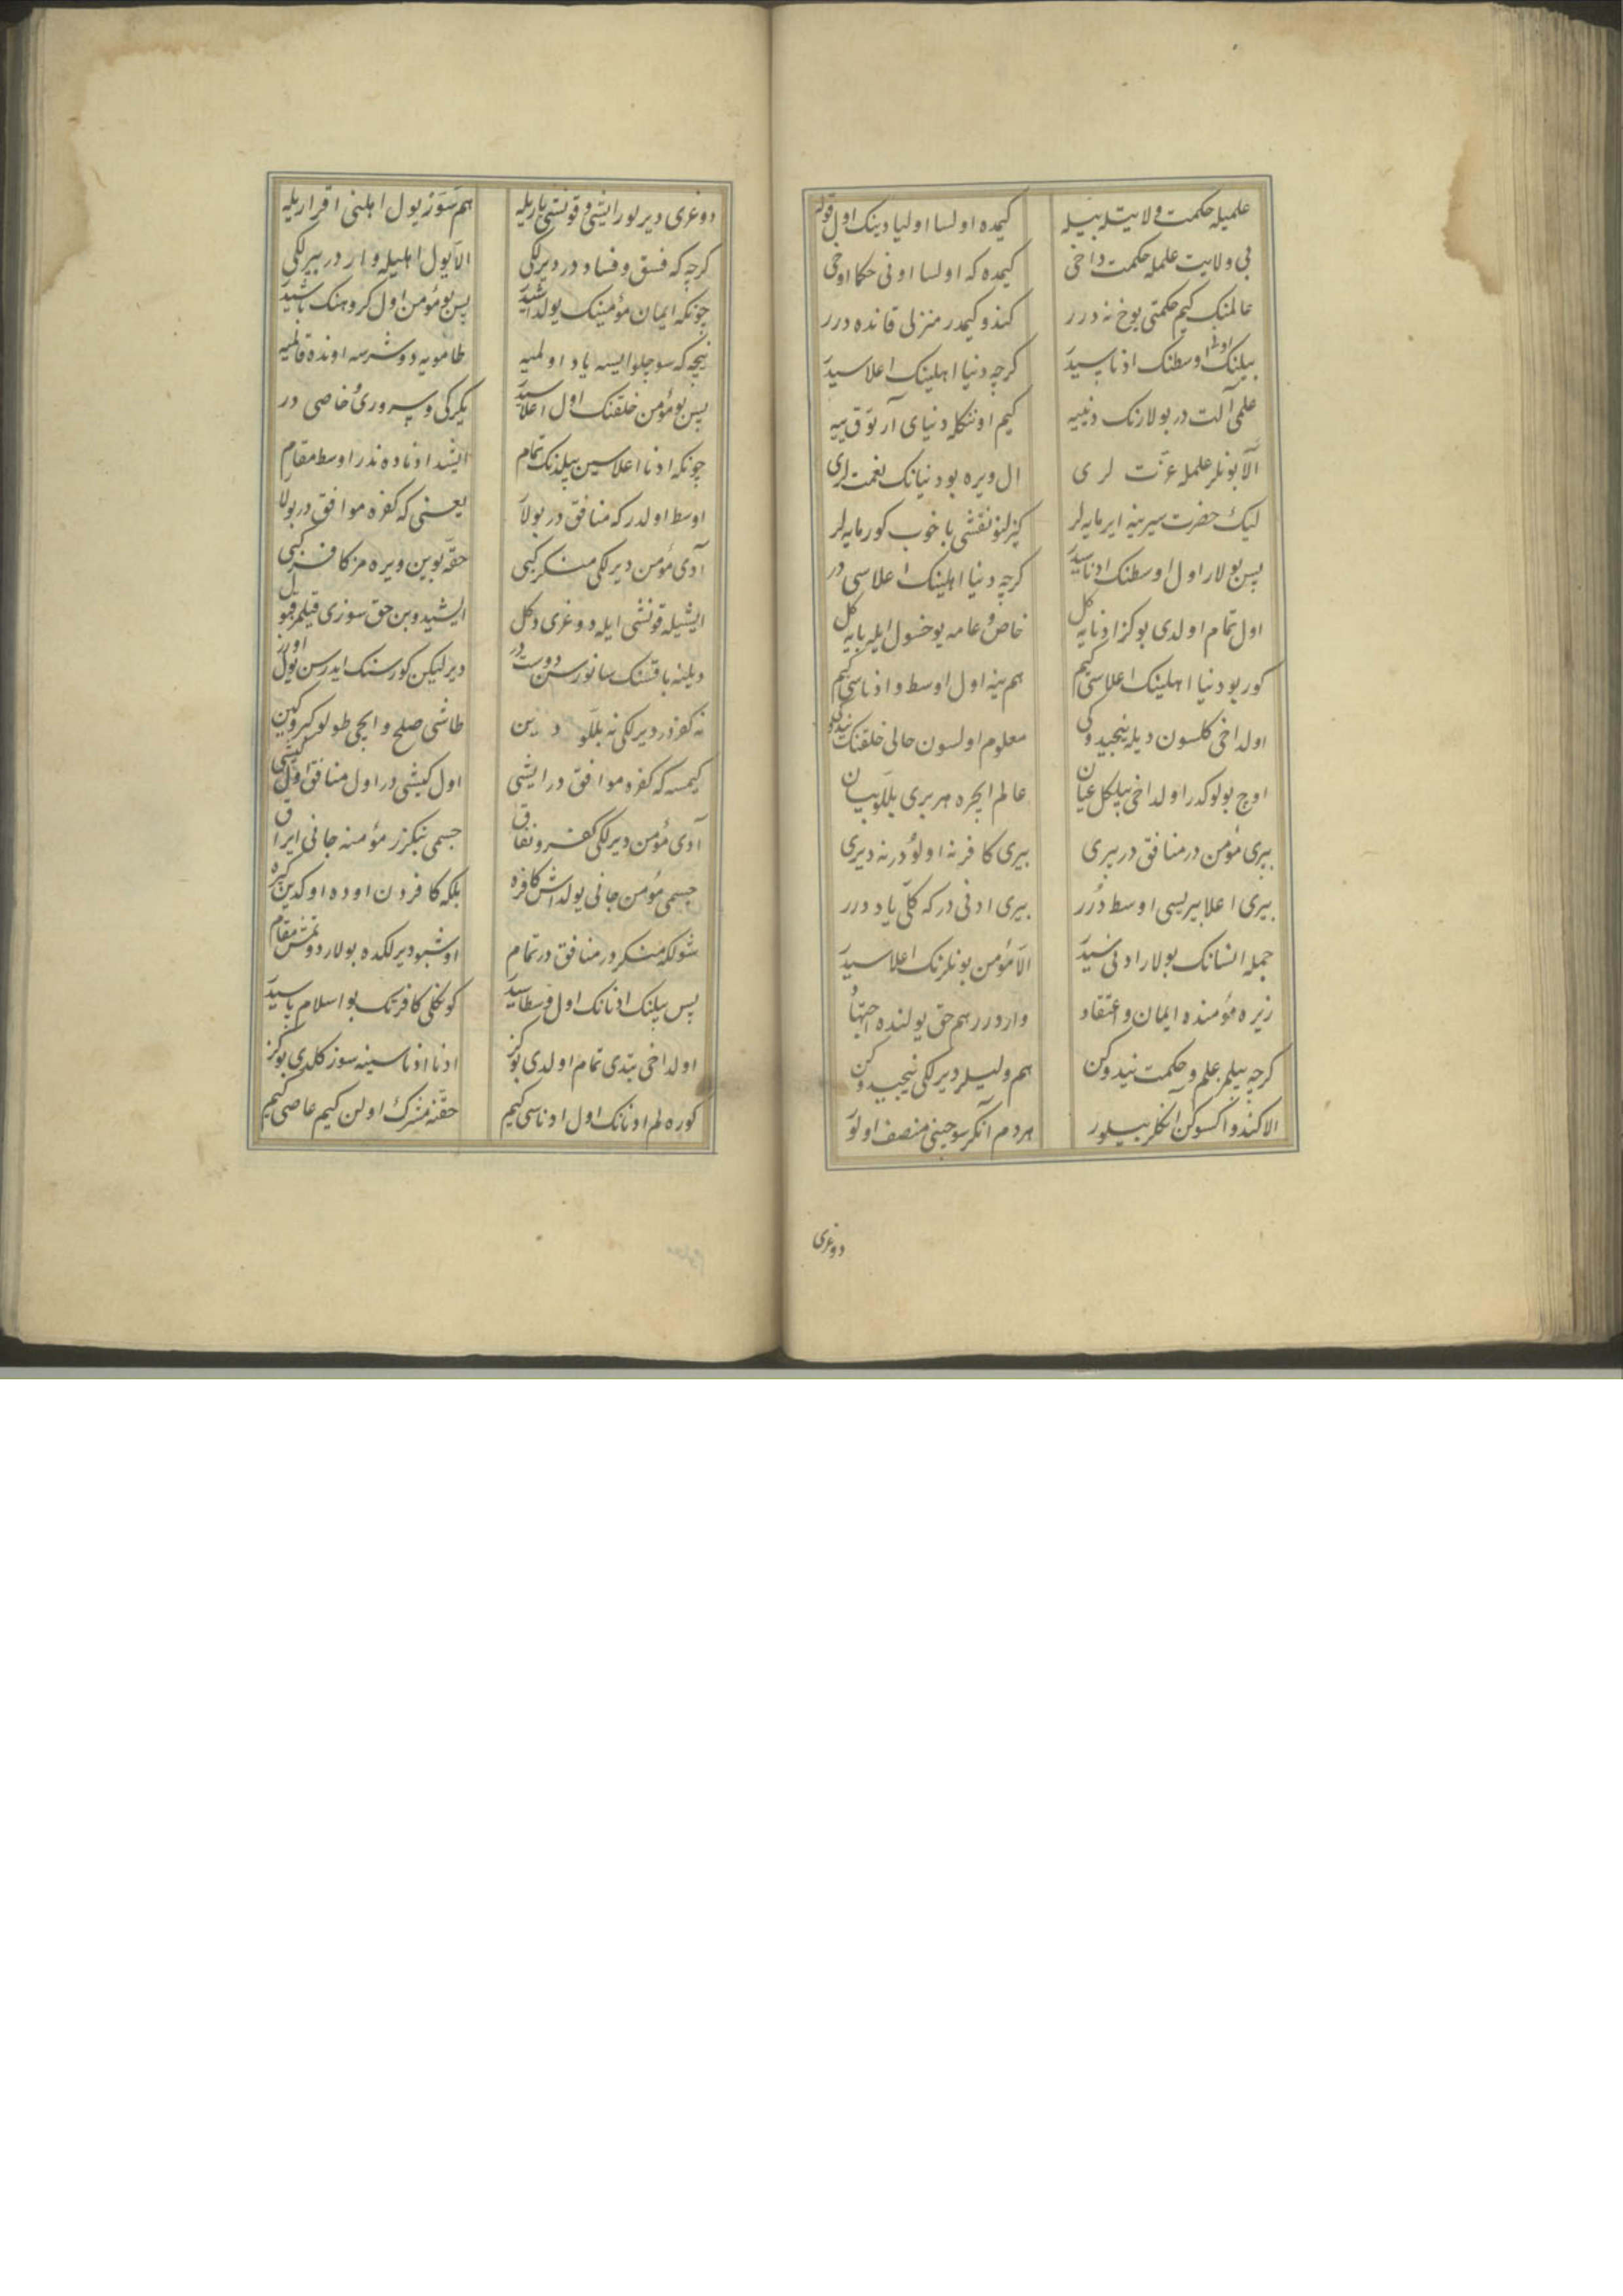 علمیله حکمت ولایتله بیله
کیمده اولسا اولیا دینک اول قوله
بی ولایت علمله حکمت داخی
کیمده که اولسا اونی حکما اوخی
عالمنک کیم حکمتی یوخ نه درر
کندو کیمدر منزلی قانده درر
بیلنک اوسطنک ادناسیدر
کرچه دنیا اهلینک اعلاسیدر
علمی آلت در بولارنک دنییه
کیم اوننکله دنیای آرتوق ییه
الا بونلر علمله عزت لری
ال ویره بو دنیانک نعمت لری
لیک حضرت سیرینه ایرمایه لر
کیزلنو نقشی با خوب کورمایه لر
پس بولار اول اوسطنک ادناسیدر
کرچه دنیا اهلینک اعلاسی در
اول تمام اولدی بو کز ادنایه کل
خاص و عامه یوخسول ایله بایه کل
کور بو دنیا اهلینک اعلاسی کیم
هم ینه اول اوسط و ادناسی کیم
اولداخی کلسون دیله نیجیدوکی
معلوم اولسون حالی خلقنک نیدوکی
اوچ بولوکدر اولداخی بیلکل عیان
عالم ایچره هر بری بللو بیان
بیری مؤمن در منافق در بیری
بیری کافر نه اولؤدر نه دیری
بیری اعلا بیریسی اوسط درر
بیری ادنی در که کلی یاد درر
جمله انسانک بولار ادنی سیدر
الا مؤمن بونلرنک اعلاسیدر
زیره مؤمنده ایمان و اعتقاد
واردرر هم حق یولنده اجتهاد
کرچه بیلمز علم و حکمت نیدوکن
هم ولیلر دیرلکی نیجیدوکن
الا کندو اکسوکن آنکلر بیلور
هردم آنکر سوچینی منصف اولور
دوغری
دوغری دیر یورایشی و قونشی یاریله
هم سور یول اهلنی اقراریله
کرچه که فسق و فساد در دیرلکی
الا یول اهلیله واردر بیرلکی
چونکه ایمان مؤمینک یولداشیدر
پس بو مؤمن اول کروهنک باشیدر
نیچه که سوچلو ایسه یاد اولمیه
طامویه دوشرسه اونده قالمیه
پس بو مؤمن خلقنک اول اعلاسیدر
یکرکی و سروری خاصی در
چونکه ادنا اعلاسین بیلدنک تمام
ایشد ادناده ندر اوسط مقام
اوسط اولدر که منافق در بولار
یعنی که کفره موافق در بولار
آدی مؤمن دیرلکی منکر کبی
حقه بوین ویره مز کافر کبی
ایشیله قونشی ایله دوغری دکل
ایشیدوبن حق سوزی قیلمز قبول
دیلنه باقسنک سانورسن دوست در
دیرلیکن کورسنک ایدرسن یول اورر
نه کفردر دیرلکی نه بللو دین
طاشی صلح و ایچی طولو کبر و کین
کیمسه که کفره موافق در ایشی
اول کیشی در اول منافق اول کیشی
آدی مؤمن دیرلکی کفر و نفاق
جسمی بنکزر مؤمنه جانی ایراق
جسمی مؤمن جانی یولداش کافره
بلکه کافردن اوده اوکدین کیره
شولکه منکر در منافق در تمام
اوشبو دیرلکده بولار دوتمش مقام
پس بیلنک ادنانک اول وسطاسیدر
کونکلی کافرنک بو اسلام یاسیدر
اولداخی بتدی تمام اولدی بو کز
ادنا ادناسینه سوز کلدی بو کز
کوره لم ادنانک اول ادناسی کیم
حقنه مشرک اولن کیم عاصی کیم